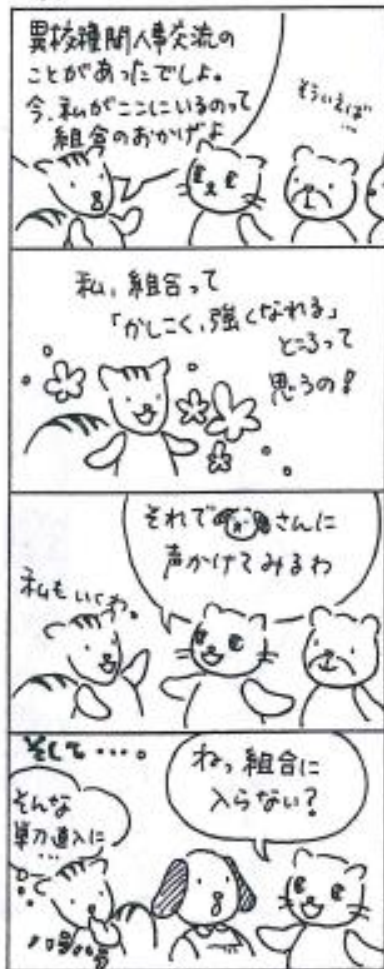 異校種間人事交流の
ことがあったでしょ。
今、私がここにいるのって
組合のおかげよ
そういえば
…
私、組合って
「かしこく、強くなれる」
ところって
思うの!
それで さんに
声かけてみるわ
私もいくわ。
そして‥‥。
ねっ組合に
入らない?
そんな
単刀直入に
…